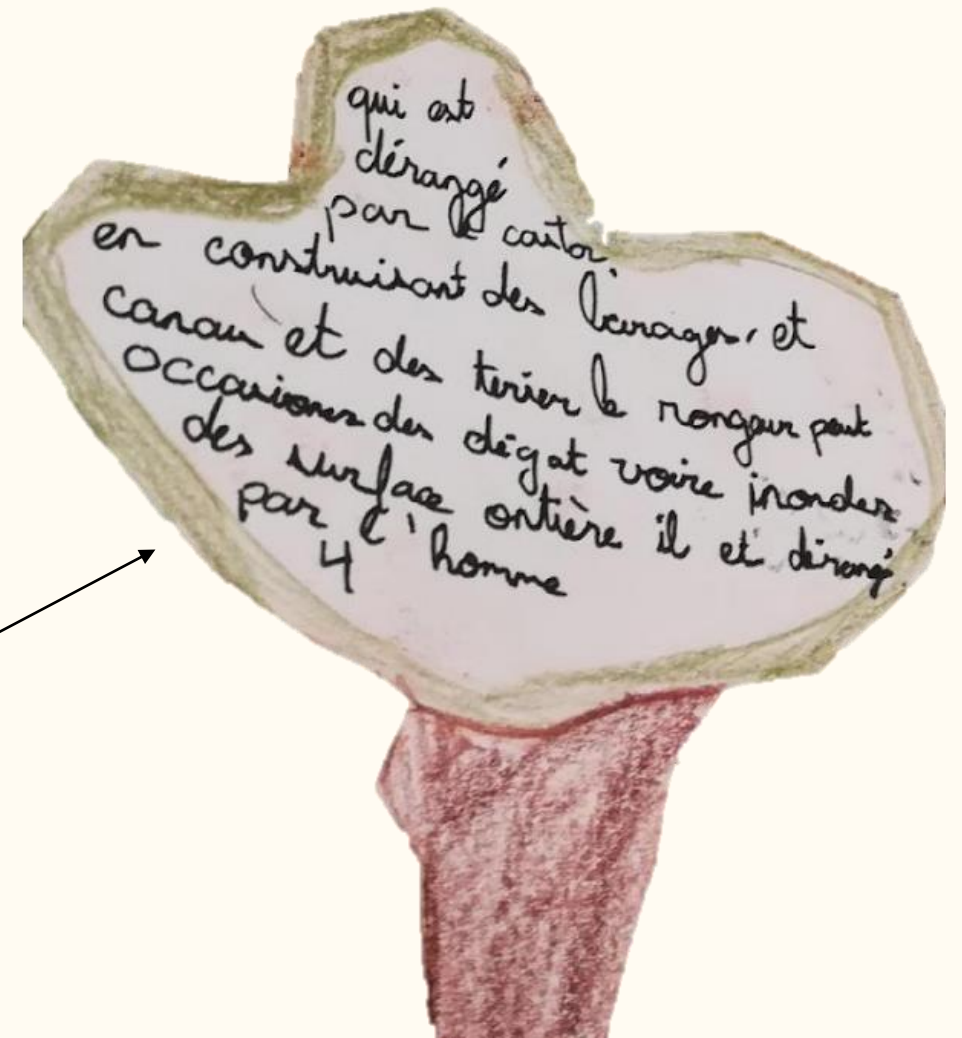 qui est
dérangé
par le castor.
en construisant des barages, et
canau et des terier le rongeur peut
occasiones des dégat voire inonder
des surface entière il et dérangé
par l'homme
4